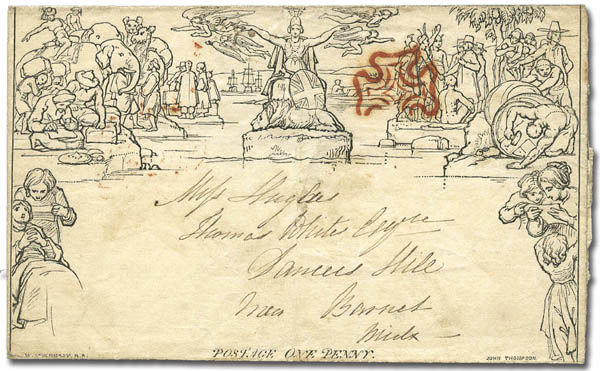 Miss Hughes
Thomas White Esqre
Dancers Hill
near Barnet
Midx
POSTAGE ONE PENNY.
R.A.
JOHN THOMPSON